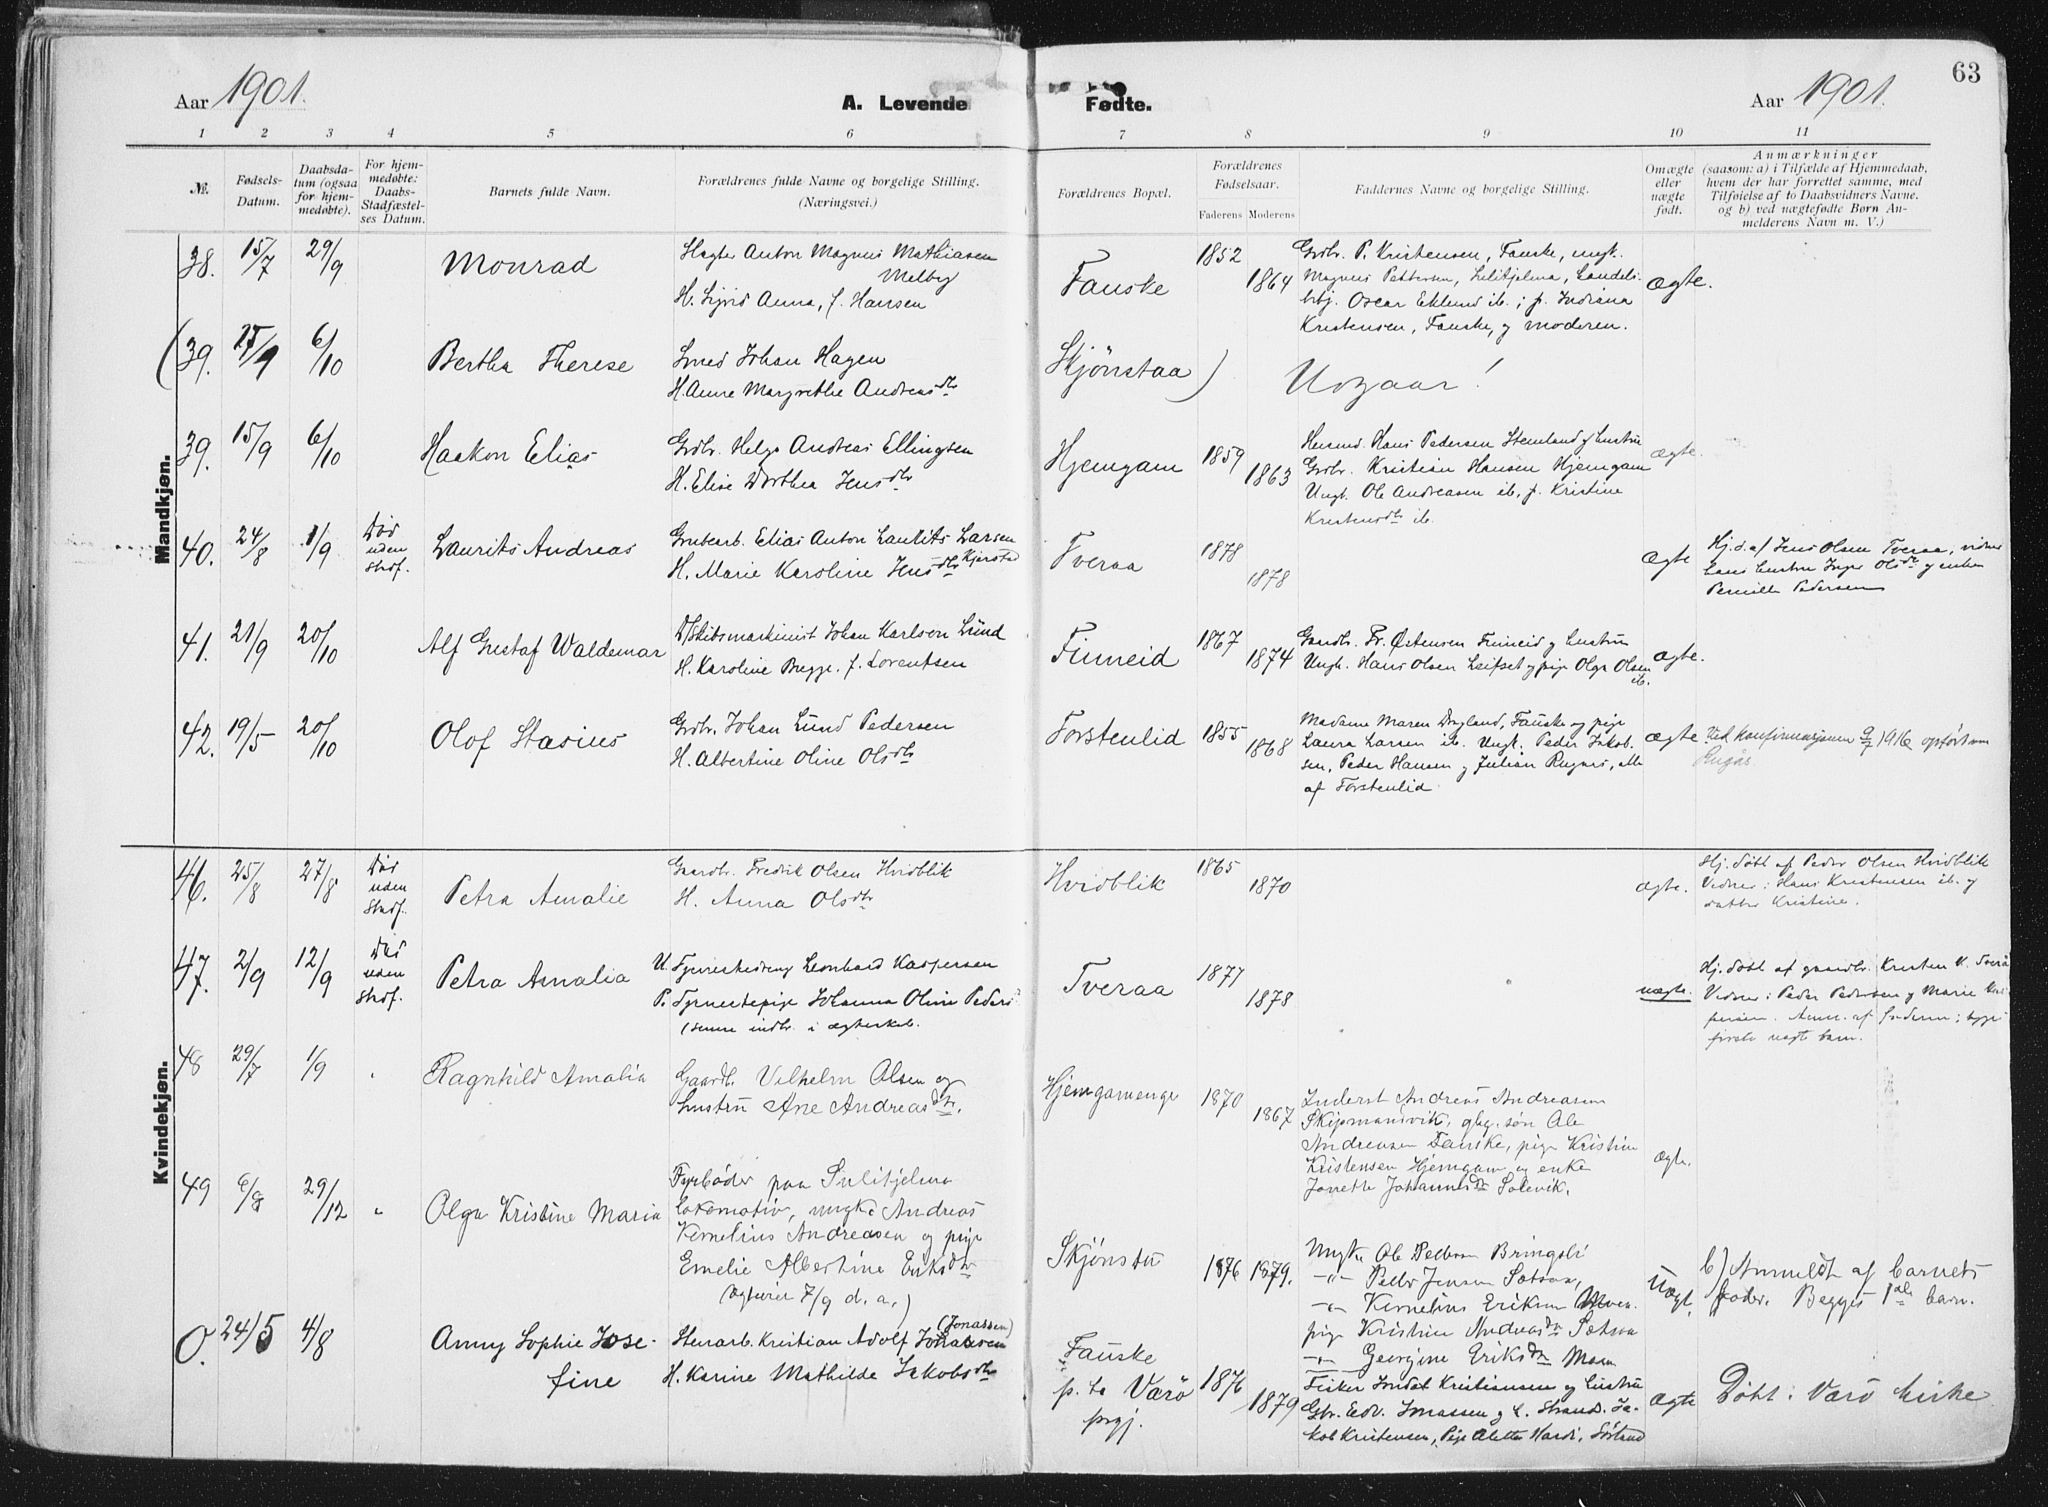 63
Aar 1901. A. Levende Fødte. Aar 1901.
1 2 3 4 5 6 7 8 9 10 11
№.
Fødsels-
Datum.
Daabsda-
tum (ogsaa
for hjem-
medøbte).
For hjem-
medøbte:
Daabs-
Stadfæstel-
ses Datum.
Barnets fulde Navn.
Forældrenes fulde Navne og borgelige Stilling.
(Næringsvei.)
Forældrenes Bopæl.
Forældrenes
Fødselsaar.
Faderens Moderens
Faddernes Navne og Stilling.
Omægte
eller
nægte
født.
Anmærkninger
(saasom: a) i Tilfælde af Hjemmedaab,
hvem der har forrettet samme, med
Tilføielse af to Daabsvidners Navne.
og b) ved nægtefødte Børn An-
melderens Navn m. V.)
Mandkjøn.
38. 15/7 29/9 Monrad
Anton Magnus Mathiasen
Melby
H. Sigrid Anna, f. Hansen
Fauske 1852 1864
Grdbr. P. Kristensen, Fauske, ungk.
Magnus Pettersen, Sulitjelma, Handels-
btj. Oscar Eklund ib.; p. Indiana
Kristensen, Fauske, og moderen.
Ægte.
(39. 6/10 Bertha Therese
Smed Johan Hagen
H. Anne Margrethe Andreasdtr
Skjønstaa) Udgaar!
39. 15/9 6/10 Haakon Elias
Grdbr. Helge Andreas Ellingsen
H. Elise Dorthea Jensdtr
Hjemgam 1859 1863
Husmd. Hans Pedersen Stemland og hustru
Grdbr. Kristian Hansen Hjemgam
Ungk. Ole Andreasen ib, p. Kristine
Kristensdtr ib.
Ægte.
40. 24/8 1/9
Død
uden
stadf.
Laurits Andreas
Grubearb. Elias Anton Laurits Larsen
Kjerstad
H. Marie Karoline Jensdtr
Tveraa 1878 1878
Ægte
Hj.d. af Jens Olsen Tveraa, vidner
hans hustru Inger Olsdtr og enken
Pernille Pedersen
41. 21/9 20/10 Alf Gustaf Waldemar
D/Skibsmaskinist Johan Karlson Lund
H. Karoline Bugge, f. Lorentsen
Finneid 1867 1874
Gaardbr. Fr. Østensen Finneid og hustru
Ungk. Hans Olsen Leifset og pige Olga Olsen
ib.
Ægte.
42. 19/5 20/10 Olof Stasius
Grdbr. Johan Lund Pedersen
H. Albertine Oline Olsdtr
Forstenlid 1855 1868
Madame Maren Dagland, Fauske og pige
Laura Larsen ib. Ungk. Peder Jakob-
sen, Peder Hansen og Julian Rognes, alle
af Forstenlid
Ægte
Ved konfirmasjonen 9/7 1916 opført som
Kvindekjøn.
46. 25/8 27/8
Død
uden
stadf.
Petra Amalie
Gaardbr. Fredrik Olsen Hvidblik
H. Anna Olsdtr
Hvidblik 1865 1870
ægte.
Hj. døbt af Peder Olsen Hvidblik
Vidner: Hans Kristensen ib. og
datter Kristine.
47. 2/9 12/9
Død
uden
stadf.
Petra Amalia
U. Tjenestedreng Leonhard Kaspersen
P. Tjenestepige Johanna Oline Peders
(senere indtr. i ægteskab.
Tveraa 1877 1878
uægte.
Hj. døbt af gaardbr. Kristen N. Tverå
Vidner: Peder Pedersen og Marie
persen. Anm. af faderen; begge
første uægte barn.
48 29/7 1/9 Ragnhild Amalia
Gaardb. Vilhelm Olsen og
hustru Ane Andreasdtr.
Hjemgamenge 1870 1867
Inderst Andreas Andreasen
Skipmansvik, gbg. søn Ole
Andreasen Fauske, pige Kristine
Kristensen Hjemgam og enke
Jonette Johannesdtr Solevik.
Ægte.
49 6/8 29/12 " Olga Kristine Maria
Fyrbøder paa Sulitjelma
lokomotiv, ungk. Andreas
Kornelius Andreasen og pige
Emelie Albertine Eriksdtr
(ægtevier 7/9 d. a.)
Skjønstu 1876 1879.
Ungk. Ole Pedersen Bringsli
—"— Peder Jensen Sætsaa,
—"— Kornelius Eriksen
pige Kristine Andreasdtr Sætsaa
—"— Georgine Eriksdtr Moen
Uægt.
b) Anmeldt af barnets
fader. Begges 1ste barn.
0. 24/5 4/8 Anny Sophie Jose-
fine
(Jonassen)
Stenarb. Kristian Adolf Johansen
H. Karine Mathilde Jakobsdtr
Fauske
p. ta Værø
prgj.
1876 1879
Fisker Jordal Kristiansen og hustru
Gbr. Edv. Jonassen og h. Strand. Ja-
kob Kristensen, Pige Alette Hardi, Sørland
Ægte
Døbt i Værø kirke